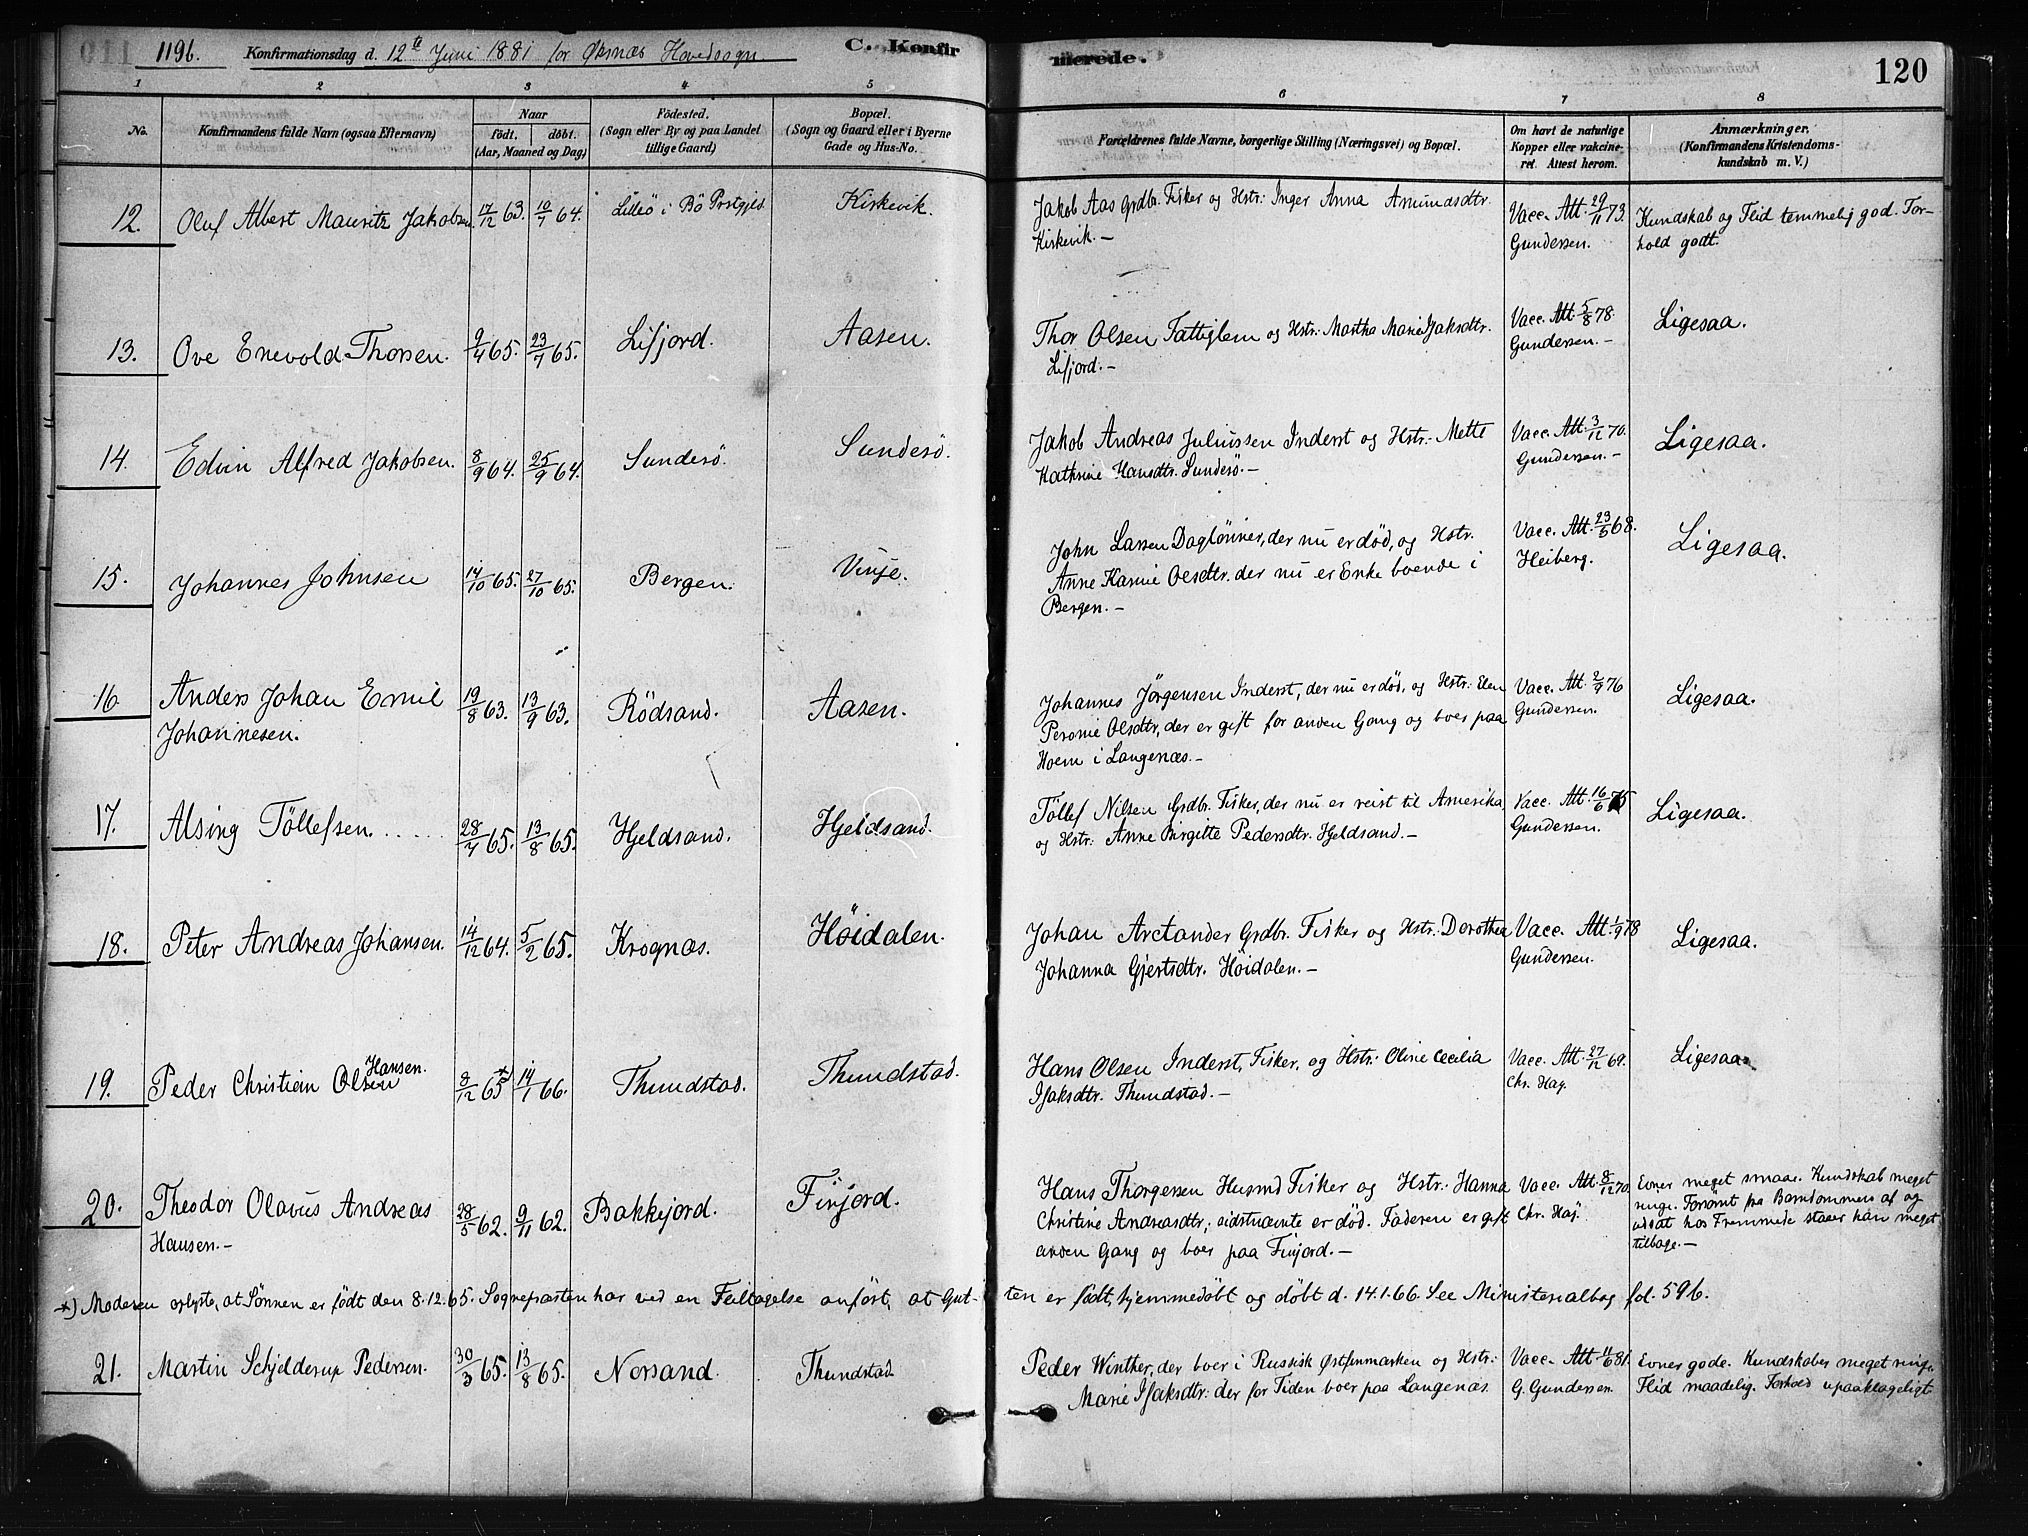 1196. Konfirmationsdag d. 12te Juni 1881 for Øksnæs Hovedsogn. C. Konfirmerede. 120
1 2 3 4 5 6 7 8
No. Konfirmandens fulde Navn (ogsaa Efternavn) Naar født, døbt. (Aar, Maaned og Dag) Fødested. (Sogn eller By og paa Landet tillige Gaard) Bopæl. (Sogn og Gaard eller i Byerne Gade og Hus-No. Forældrenes fulde Navne, borgerlige Stilling (Næringsvei) og Bopæl. Om havt de naturlige Kopper eller vakcineret. Attest herom. Anmærkninger. (Konfirmandens Kristendomskundskab m. V.)
12. Oluf Albert Mauritz Jakobsen. 17/12 63. 10/7 64. Lillsö i Bö Prstgjeld. Kirkevik. Jakob Aas Grdbr. Fisker og Hstr: Inger Anna Amundsdtr. Vacc. Att. 29/11 73. Kundskab og Flid temmelig god. For-
Kirkevik. — Gundersen. hold godt.
13. Ove Enevold Thorsen. 9/4 65. 23/7 65. Lifjord. Aasen. Thor Olsen Fattiglem og Hstr: Martha Marie Isaksdtr. Vacc. Att. 5/8 78. Ligesaa.
Lifjord. — Gundersen. —
14. Edvin Alfred Jakobsen. 8/9 64. 25/9 64. Sundesö. Sundesö. Jakob Andreas Juliussen Inderst og Hstr: Mette Vacc. Att. 3/12 70. Ligesaa.
Kathrine Hansdtr. Sundesö. — Gundersen. —
15. Johannes Johnsen 14/10 65. 27/10 65. Bergen. Vinje. John Larsen Daglönner, der nu er död, og Hstr. Vacc. Att. 23/5 68. Ligesaa.
Anne Karine Olsdtr. der nu er Enke boende i Heiberg.
Bergen. —
16. Anders Johan Emil 19/8 63. 13/9 63. Rödsand. Aasen. Johannes Jörgensen Inderst, der nu er död, og Hstr: Elen Vacc. Att. 2/9 76 Ligesaa.
Johannesen. Peronie Olsdtr, der er gift for anden Gang og boer paa Gundersen.
Hoem i Langenæs. —
17. Alsing Töllefsen. ..... 28/7 65. 13/8 65. Hjeldsand. Hjeldsand. Töllef Nilsen Grdbr. Fisker, der nu er reist til Amerika Vacc. Att. 16/6 75 Ligesaa.
og Hstr: Anne Birgitte Pedersdtr. Hjeldsand. — Gundersen.
18. Peter Andreas Johansen. 14/12 64. 5/2 65. Krognæs. Höidalen. Johan Arctander Grdbr. Fisker og Hstr: Dorothea Vacc. Att. 1/9 78 Ligesaa.
Johanna Gjertsdtr. Höidalen. — Gundersen.
19. Peder Christian Olsen Hansen. 8/12 65 *) 14/1 66. Thundstad. Thundstad. Hans Olsen Inderst, Fisker, og Hstr: Oline Cecilia Vacc. Att. 27/12 69. Ligesaa.
Isaksdtr. Thundstad. — Chr. Hay.
20. Theodor Olavus Andreas 28/5 62. 9/11 62. Bakkejord. Finjord. Hans Thorgersen Husmd Fisker og Hstr: Hanna Vacc. Att. 8/12 70. Evner meget smaa. Kundskab meget
Hansen. — Christine Andreasdtr; sidstnævnte er död. Faderen er gift Chr. Hay. ringe. Forsömt fra Barndommen af og
anden Gang og boer paa Finjord. — udsat hos Fremmede staaer han meget
tilbage. —
*) Moderen oplyste, at Sönnen er födt den 8.12.65. Sognepræsten har ved en Feiltagelse anfört, at Gutten er födt, hjemmedöbt og döbt d. 14.1.66. See Ministerialbog fol. 596.
21. Martin Schjelderup Pedersen. 30/3 65. 13/8 65. Norsand. Thundstad. Peder Winther, der boer i Russisk Østfinmarken og Hstr: Vacc. Att. 11/6 81. Evner gode. Kundskaber meget ringe.
Marie Isaksdtr: der for Tiden boer paa Langenæs. G. Gundersen. Flid maadelig. Forhold upaaklageligt